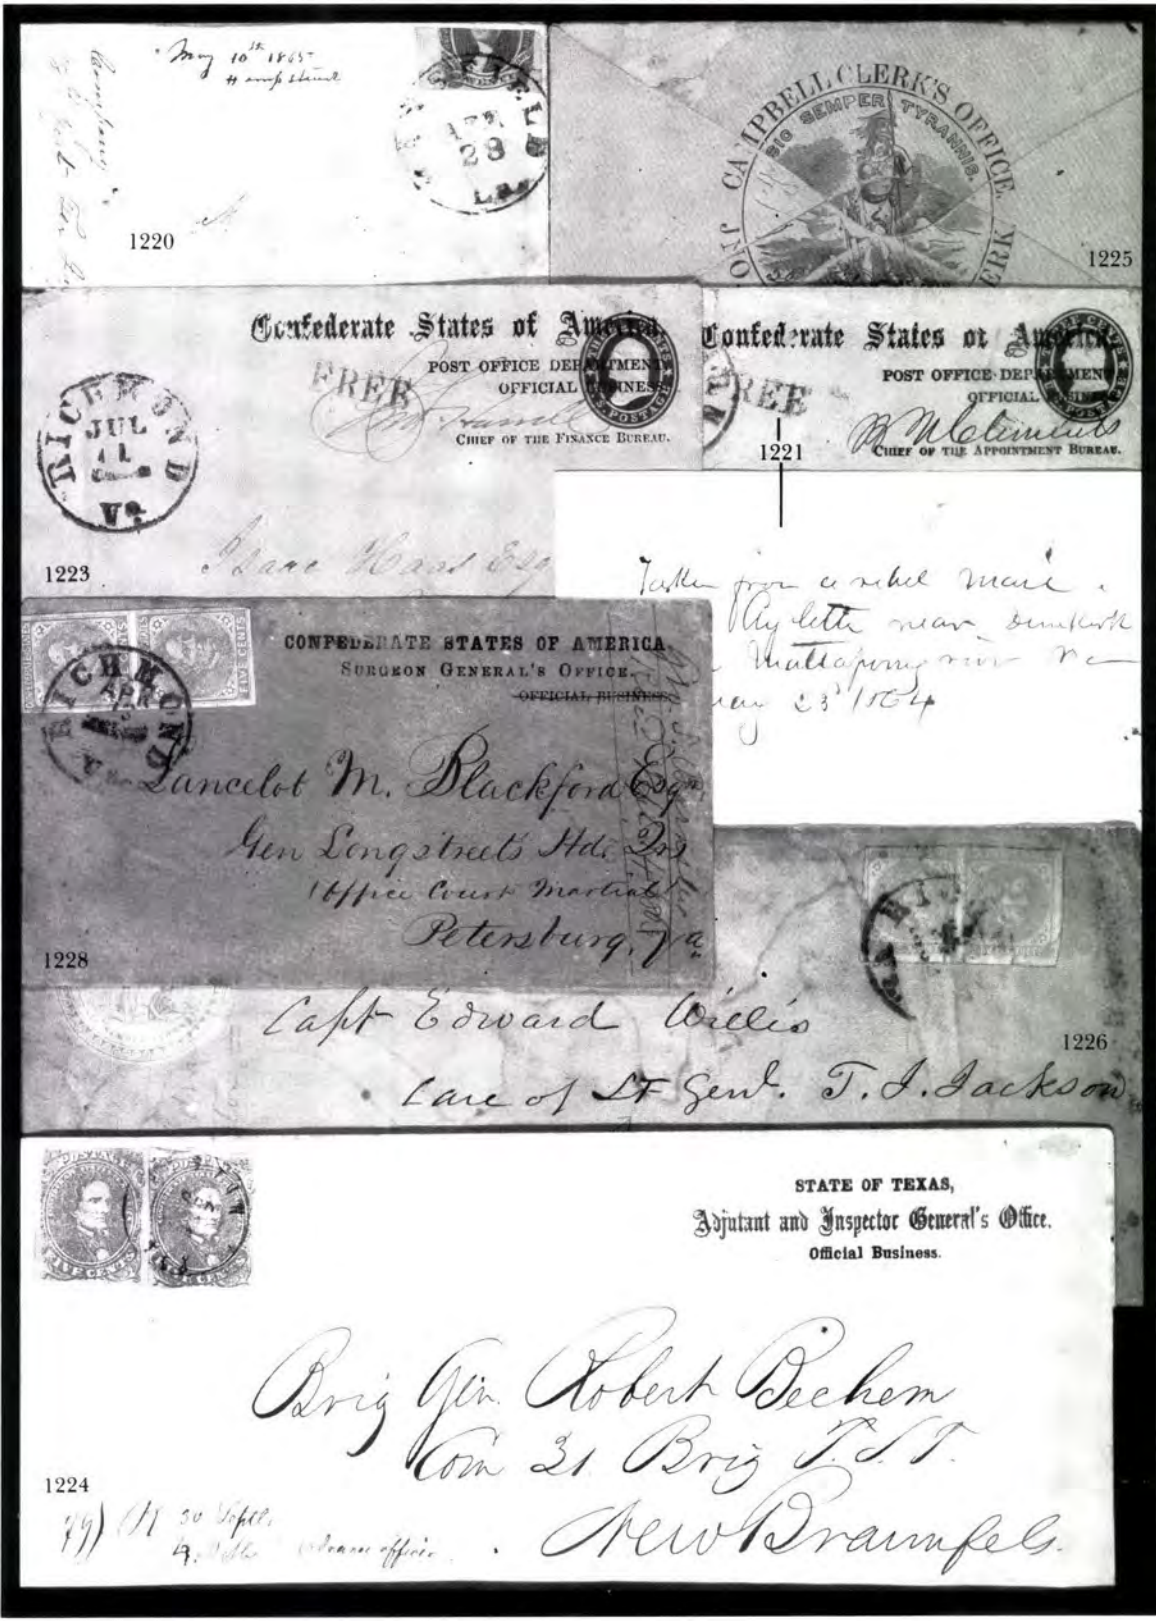 May 10th 1865
Company
APR
28
La.
1220
JNO CAMPBELL CLERK'S OFFICE.
SIC SEMPER TYRANNIS.
ERK
1225
Confederate States of America.
POST OFFICE DEPARTMENT
OFFICIAL BUSINESS
FREE
CHIEF OF THE FINANCE BUREAU.
U.S. POSTAGE
RICHMOND
JUL
11
Va.
Isaac Haas Esq
1223
Confederate States of America
POST OFFICE DEPARTMENT
OFFICIAL BUSINESS
REE
B N Clements
CHIEF OF THE APPOINTMENT BUREAU.
1221
Taken from a rebel mail
letter near Dunkirk
Mattapony river Va
23 1864
FIVE CENTS
RICHMOND
APR
VA.
CONFEDERATE STATES OF AMERICA,
SURGEON GENERAL'S OFFICE.
OFFICIAL BUSINESS
Lancelot M. Blackford Esq
Gen Longstreet's Hd. Qrs
Office Court Martial
Petersburg, Va.
1228
RI
VA
Capt Edward Willis
1226
Care of Lt Genl. T. J. Jackson
POSTAGE
FIVE CENTS
STATE OF TEXAS,
Adjutant and Inspector General's Office.
Official Business.
Brig Gen. Robert Bechem
Com 31 Brig T. S. T.
New Braunfels.
1224
30 Sept.
officer